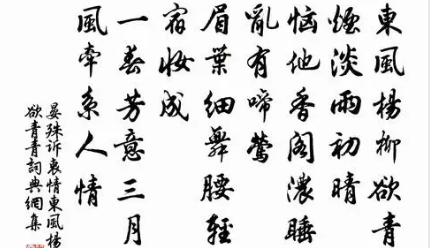 東風楊柳欲青
煙淡雨初晴
恼他香阁濃睡
亂有啼鶯
眉葉细舞腰輕
宿妆成
一春芳意三月
風牽系人情
晏殊诉衷情東風楊
欲青青詞典網集